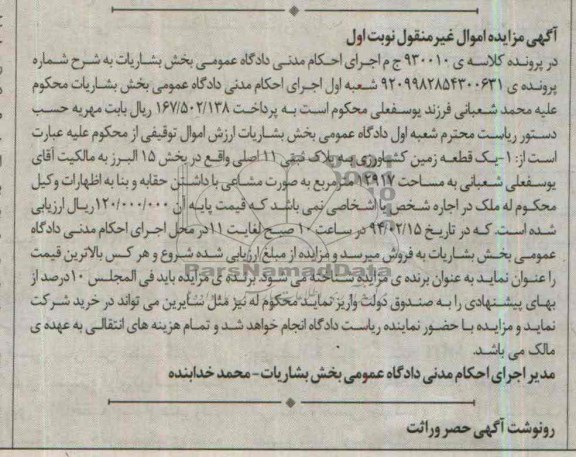 آگهی مزایده اموال غیر منقول نوبت اول
در پرونده کلاسه ی ۹۳۰۰۱۰ ج م اجرای احکام مدنی دادگاه عمومی بخش بشاریات به شرح شماره
پرونده ی ۹۲۰۹۹۸۲۸۵۴۳۰۰۶۳۱ شعبه اول اجرای احکام مدنی دادگاه عمومی بخش بشاریات محکوم
علیه محمد شعبانی فرزند یوسفعلی محکوم است به پرداخت ۱۶۷/۵۰۲/۱۳۸ ریال بابت مهریه حسب
دستور ریاست محترم شعبه اول دادگاه عمومی بخش بشاریات ارزش اموال توقیفی از محکوم علیه عبارت
است از: ۱- یک قطعه زمین کشاورزی به پلاک ثبتی ۱۱ اصلی واقع در بخش ۱۵ البرز به مالکیت آقای
یوسفعلی شعبانی به مساحت ۱۲۹۱۷ مترمربع به صورت مشاعی با داشتن حقابه و بنا به اظهارات وکیل
محکوم له ملک در اجاره شخص یا اشخاصی نمی باشد که قیمت پایه آن ۱۲۰/۰۰۰/۰۰۰ ریال ارزیابی
شده است. که در تاریخ ۹۴/۰۲/۱۵ در ساعت ۱۰ صبح لغایت ۱۱ در محل اجرای احکام مدنی دادگاه
عمومی بخش بشاریات به فروش میرسد و مزایده از مبلغ ارزیابی شده شروع و هر کس بالاترین قیمت
را عنوان نماید به عنوان برنده ی مزایده شناخته می شود. برنده ی مزایده باید فی المجلس ۱۰ درصد از
بهای پیشنهادی را به صندوق دولت واریز نماید محکوم له نیز مثل سایرین می تواند در خرید شرکت
نماید و مزایده با حضور نماینده ریاست دادگاه انجام خواهد شد و تمام هزینه های انتقالی به عهده ی
مالک می باشد.
مدیر اجرای احکام مدنی دادگاه عمومی بخش بشاریات - محمد خدابنده
رونوشت آگهی حصر وراثت
ParsNamadData